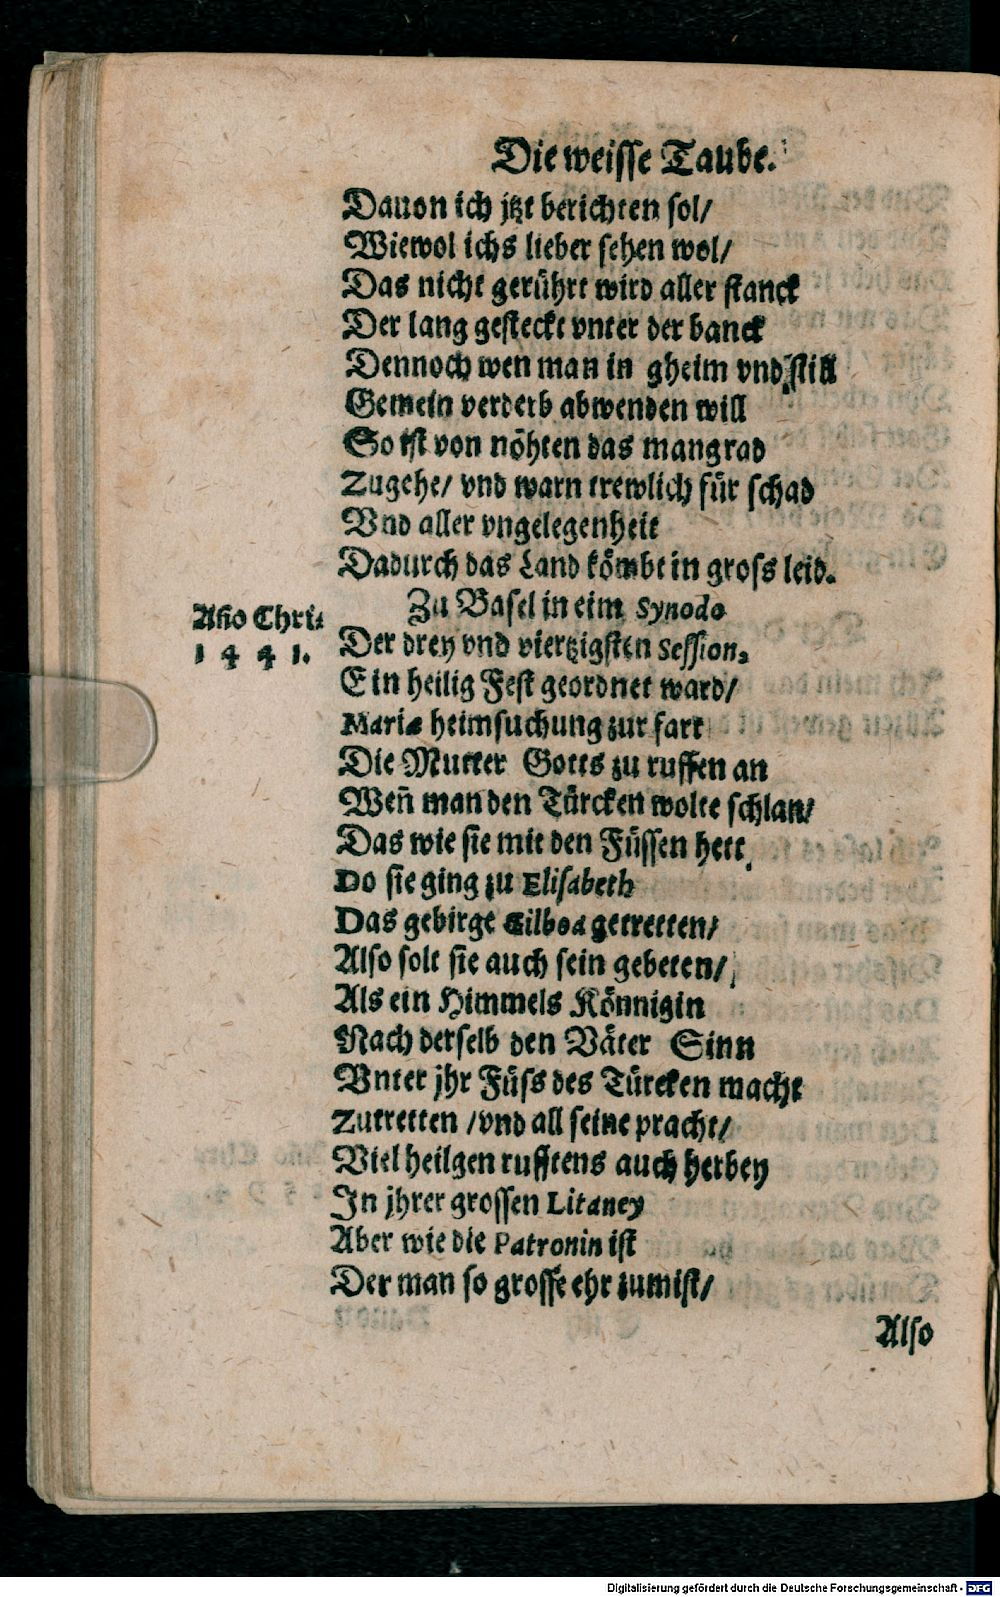 Die weisse Taube.
Dauon ich jtzt berichten sol/
Wiewol ichs lieber sehen wol/
Das nicht gerührt wird aller stanck
Der lang gesteckt vnter der banck
Dennoch wen man in gheim vnd still
Gemein verderb abwenden will
So ist von nöhten das mangrad
Zugehe/ vnd warn trewlich für schad
Vnd aller vngelegenheit
Dadurch das Land kömbt in gross leid.
Zu Basel in eim Synodo
Año Chri:
1441.
Der drey vnd viertzigsten Session,
Ein heilig Fest geordnet ward/
Mariæ heimsuchung zur fart
Die Mutter Gotts zu ruffen an
Weñ man den Türcken wolte schlan/
Das wie sie mit den Füssen hett
Do sie ging zu Elisabeth
Das gebirge Gilboa getretten/
Also solt sie auch sein gebeten/
Als ein Himmels Könnigin
Nach derselb den Väter Sinn
Vnter jhr Füss des Türcken macht
Zutretten /vnd all seine pracht/
Viel heilgen rufftens auch herbey
In jhrer grossen Litaney
Aber wie die Patronin ist
Der man so grosse ehr zumist/
Also
Digitalisierung gefördert durch die Deutsche Forschungsgemeinschaft - DFG